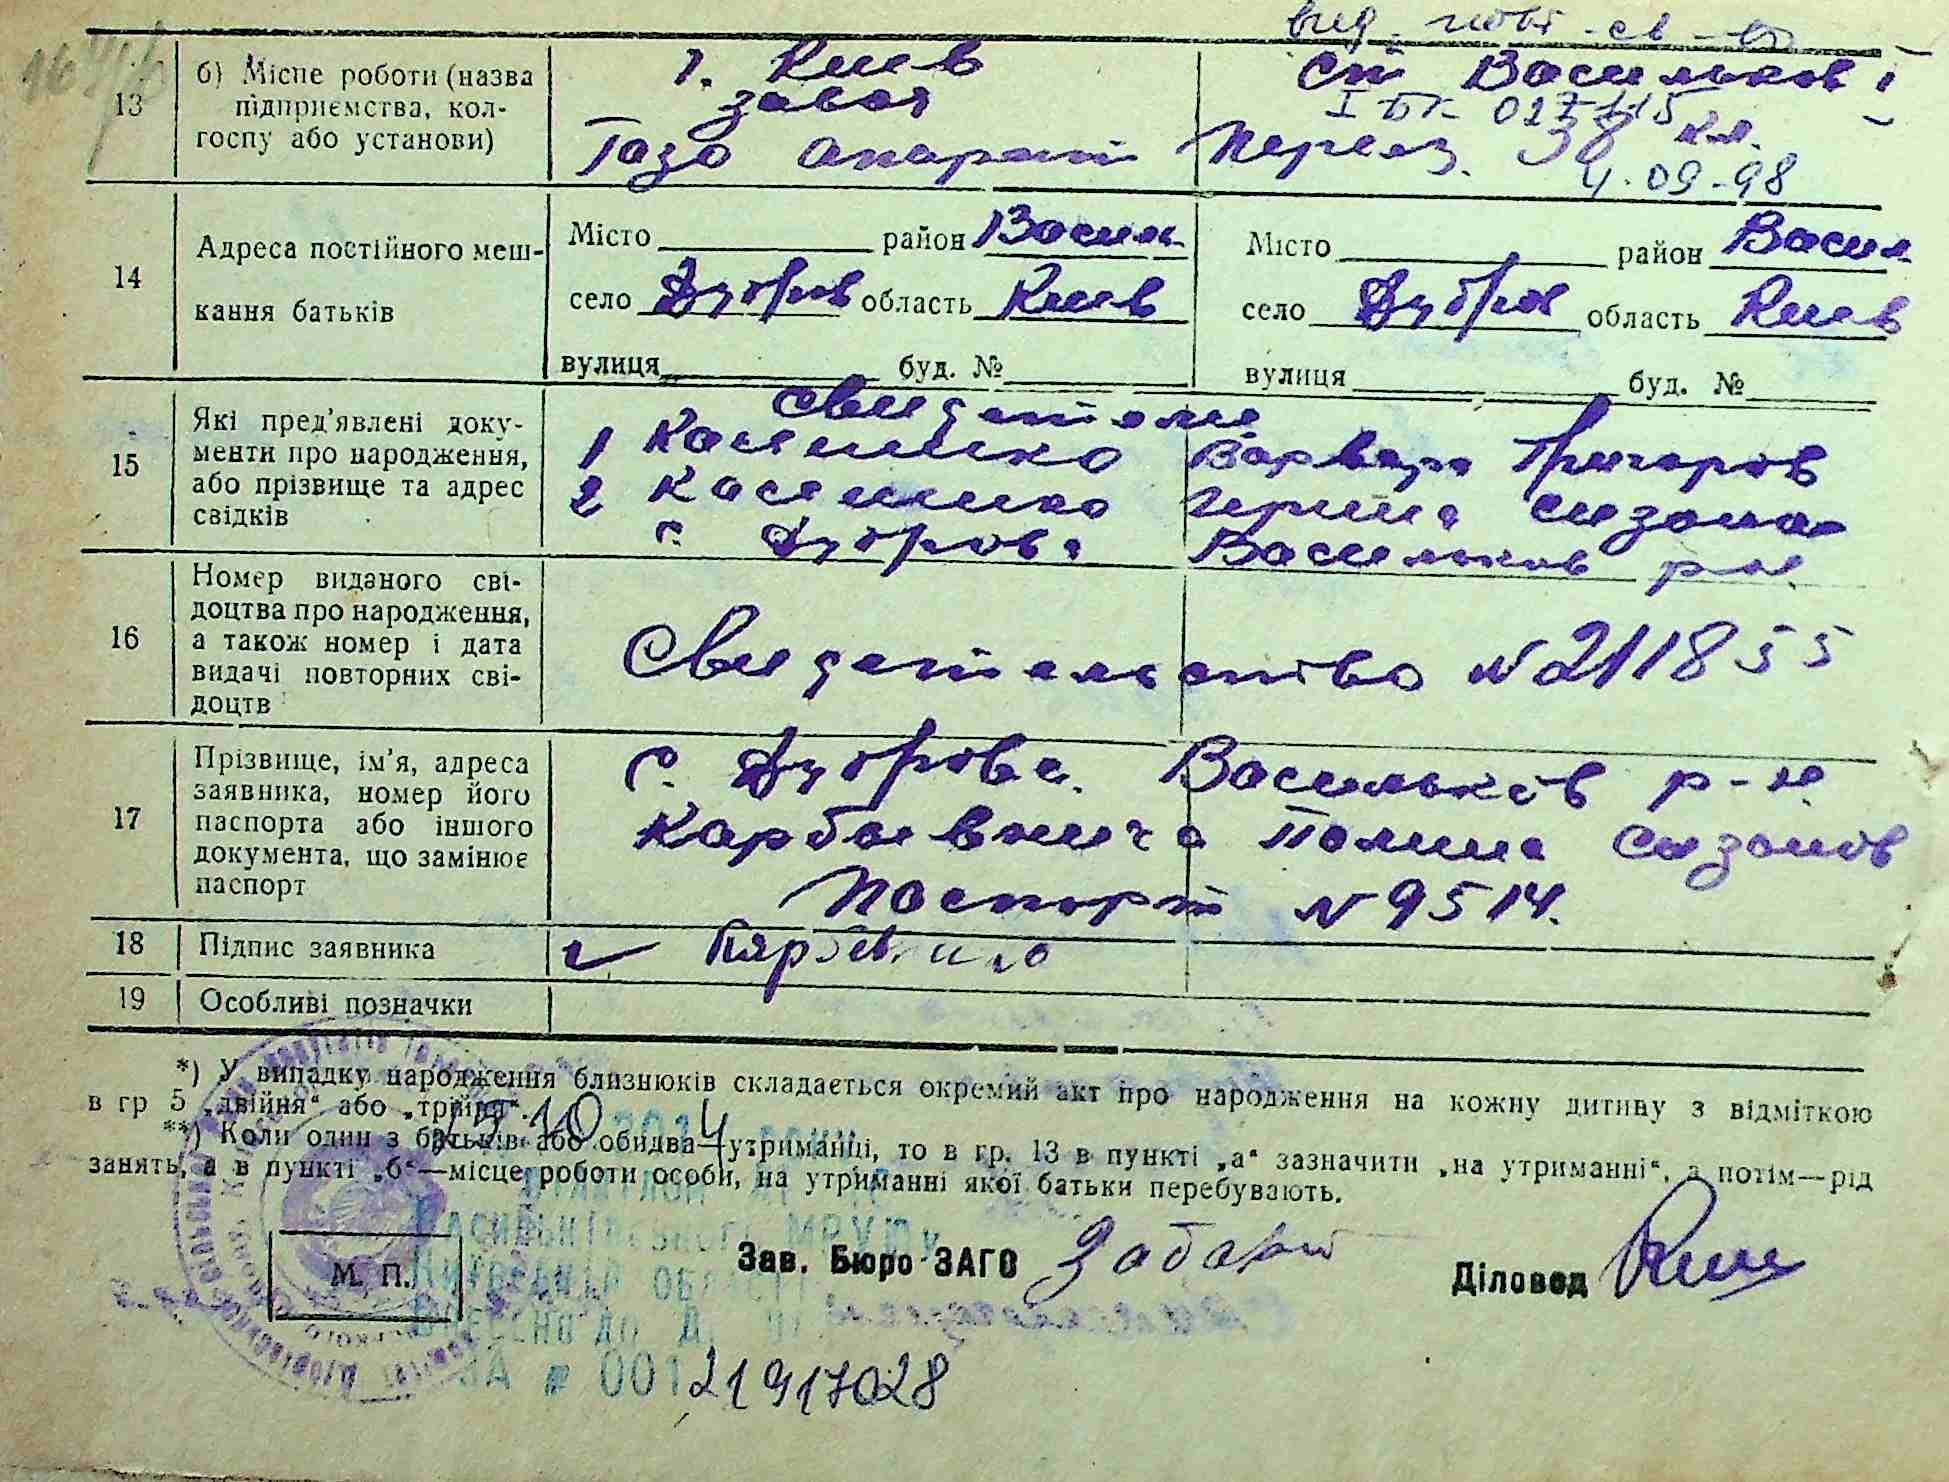 вид. повт. св-во
13
б) Місце роботи (назва
підприємства, кол-
госпу або установи)
г. Киев
завод
Газо апарат
ст Васильков I
I БК 027115
Переезд 38 км.
4.09.98
14
Адреса постійного меш-
кання батьків
Місто район Василь
село Дубров область Киев
вулиця буд. №
Місто район Васил
село Дубров область Киев
вулиця буд. №
15
Які пред'явлені доку-
менти про народження,
або прізвище та адрес
свідків
Свидетели
1 Касяненко Варвара Григоров
2 Касяненко Ирина Сизонов
с. Дуброва Васильков р-н.
16
Номер виданого сві-
доцтва про народження,
а також номер і дата
видачі повторних сві-
доцтв
Свидетельство N 211855
17
Прізвище, ім'я, адреса
заявника, номер його
паспорта або іншого
документа, що замінює
паспорт
с. Дуброва. Васильков р-н.
Карбывнича Полина Сизонов
Паспорт N 9514.
18
Підпис заявника
19
Особливі позначки
*) У випадку народження близнюків складається окремий акт про народження на кожну дитину з відміткою
в гр 5 „двійня“ або „трійня“.
**) Коли один з батьків або обидва—утриманці, то в гр. 13 в пункті „а“ зазначити „на утриманні“, а потім—рід
занять, а в пункті „б“—місце роботи особи, на утриманні якої батьки перебувають.
М. П.
Зав. Бюро ЗАГО
Діловод
001 21917028